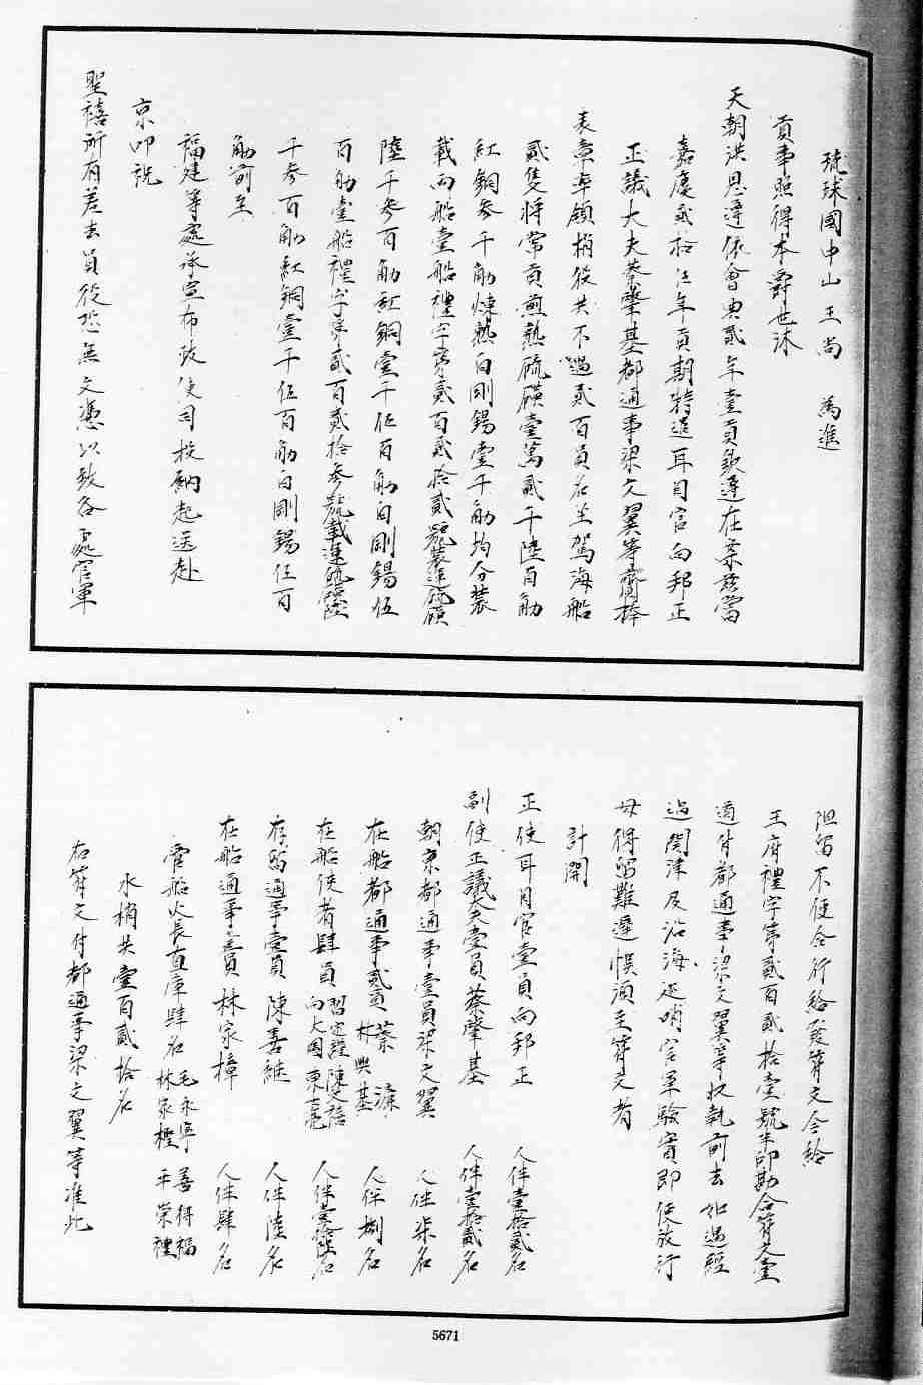 琉球國中山王尚　為進
貢事照得本爵世沐
天朝洪恩遵依會典貳年壹貢欽遵在案茲當
嘉慶貳拾伍年貢期特遣耳目官向邦正
正議大夫蔡肇基都通事梁文翼等齎捧
表章率領梢役共不過貳百員名坐駕海船
貳隻將常貢煎熟硫磺壹萬貳千陸百觔
紅銅參千觔煉熟白剛錫壹千觔均分裝
載兩船壹船禮字第貳百貳拾貳號裝運硫磺
陸千參百觔紅銅壹千伍百觔白剛錫伍
百觔壹船禮字第貳百貳拾參號載運硫磺陸
千參百觔紅銅壹千伍百觔白剛錫伍百
觔前至
福建等處承宣布政使司投納起送赴
京叩祝
聖禧所有差去員役恐無文憑以致各處官軍
阻留不便合行給發符文今給
王府禮字第貳百貳拾壹號半印勘合符文壹
道付都通事梁文翼等收執前去如遇經
過關津及沿海巡哨官軍驗實即便放行
毋得留難遲悮須至符文者
計開
正使耳目官壹員向邦正　人伴壹拾貳名
副使正議大夫壹員蔡肇基　人伴壹拾貳名
朝京都通事壹員梁文翼　人伴柒名
在船都通事貳員　蔡　濂　林興基　人伴捌名
在船使者肆員　　人伴壹拾陸名
存留通事壹員陳善繼　人伴陸名
在船通事壹員林家樟　人伴肆名
管船火長直庫肆名　毛永寧　林家檉　善得福　平榮禮
水梢共壹百貳拾名
右符文付都通事梁文翼等准此
5671